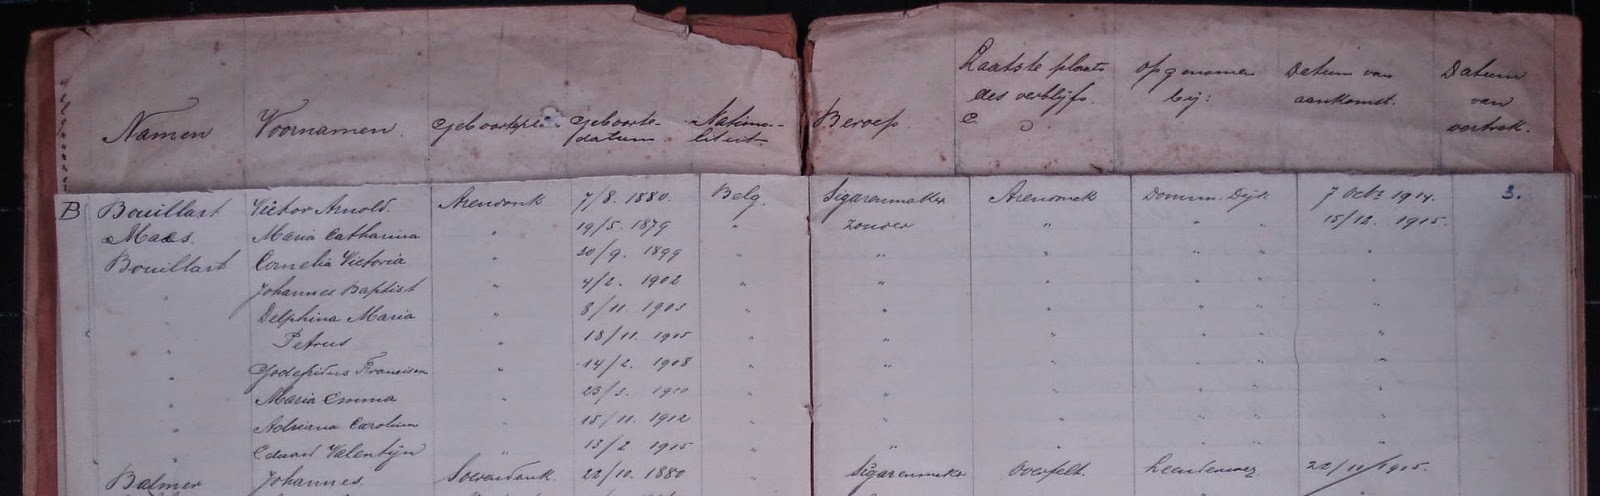 Namen Voornamen. Geboortepla Geboorte-datum Nationa-liteit Beroep. Laatste plaats des verblijfs. Opgenomen bij: Datum van aankomst. Datum van vertrek.
B Bouillart Victor Arnold. Arendonk 7/8. 1880. Belg. Sigarenmaker Arendonk Domin. Dijk 7 Oct. 1914. 3.
Maes. Maria Catharina " 19/5. 1879 " Zonder " " " 15/12. 1915.
Bouillart Cornelia Victoria " 20/9. 1899 " " " " "
Johannes Baptist " 4/2. 1902 " " " " "
Delphina Maria " 8/11. 1903 " " " " "
" Petrus " 18/11. 1905 " " " " " "
" Godefridus Franciscus " 14/2. 1908 " " " " " "
" Maria Emma " 23/3. 1910 " " " " " "
" Adriana Carolina " 15/11. 1912 " " " " " "
Eduard Valentijn " 13/2 1915 " " " " " "
Balmer Johannes. 22/10. 1880 Sigarenmaker Overpelt. 22/10/1915.